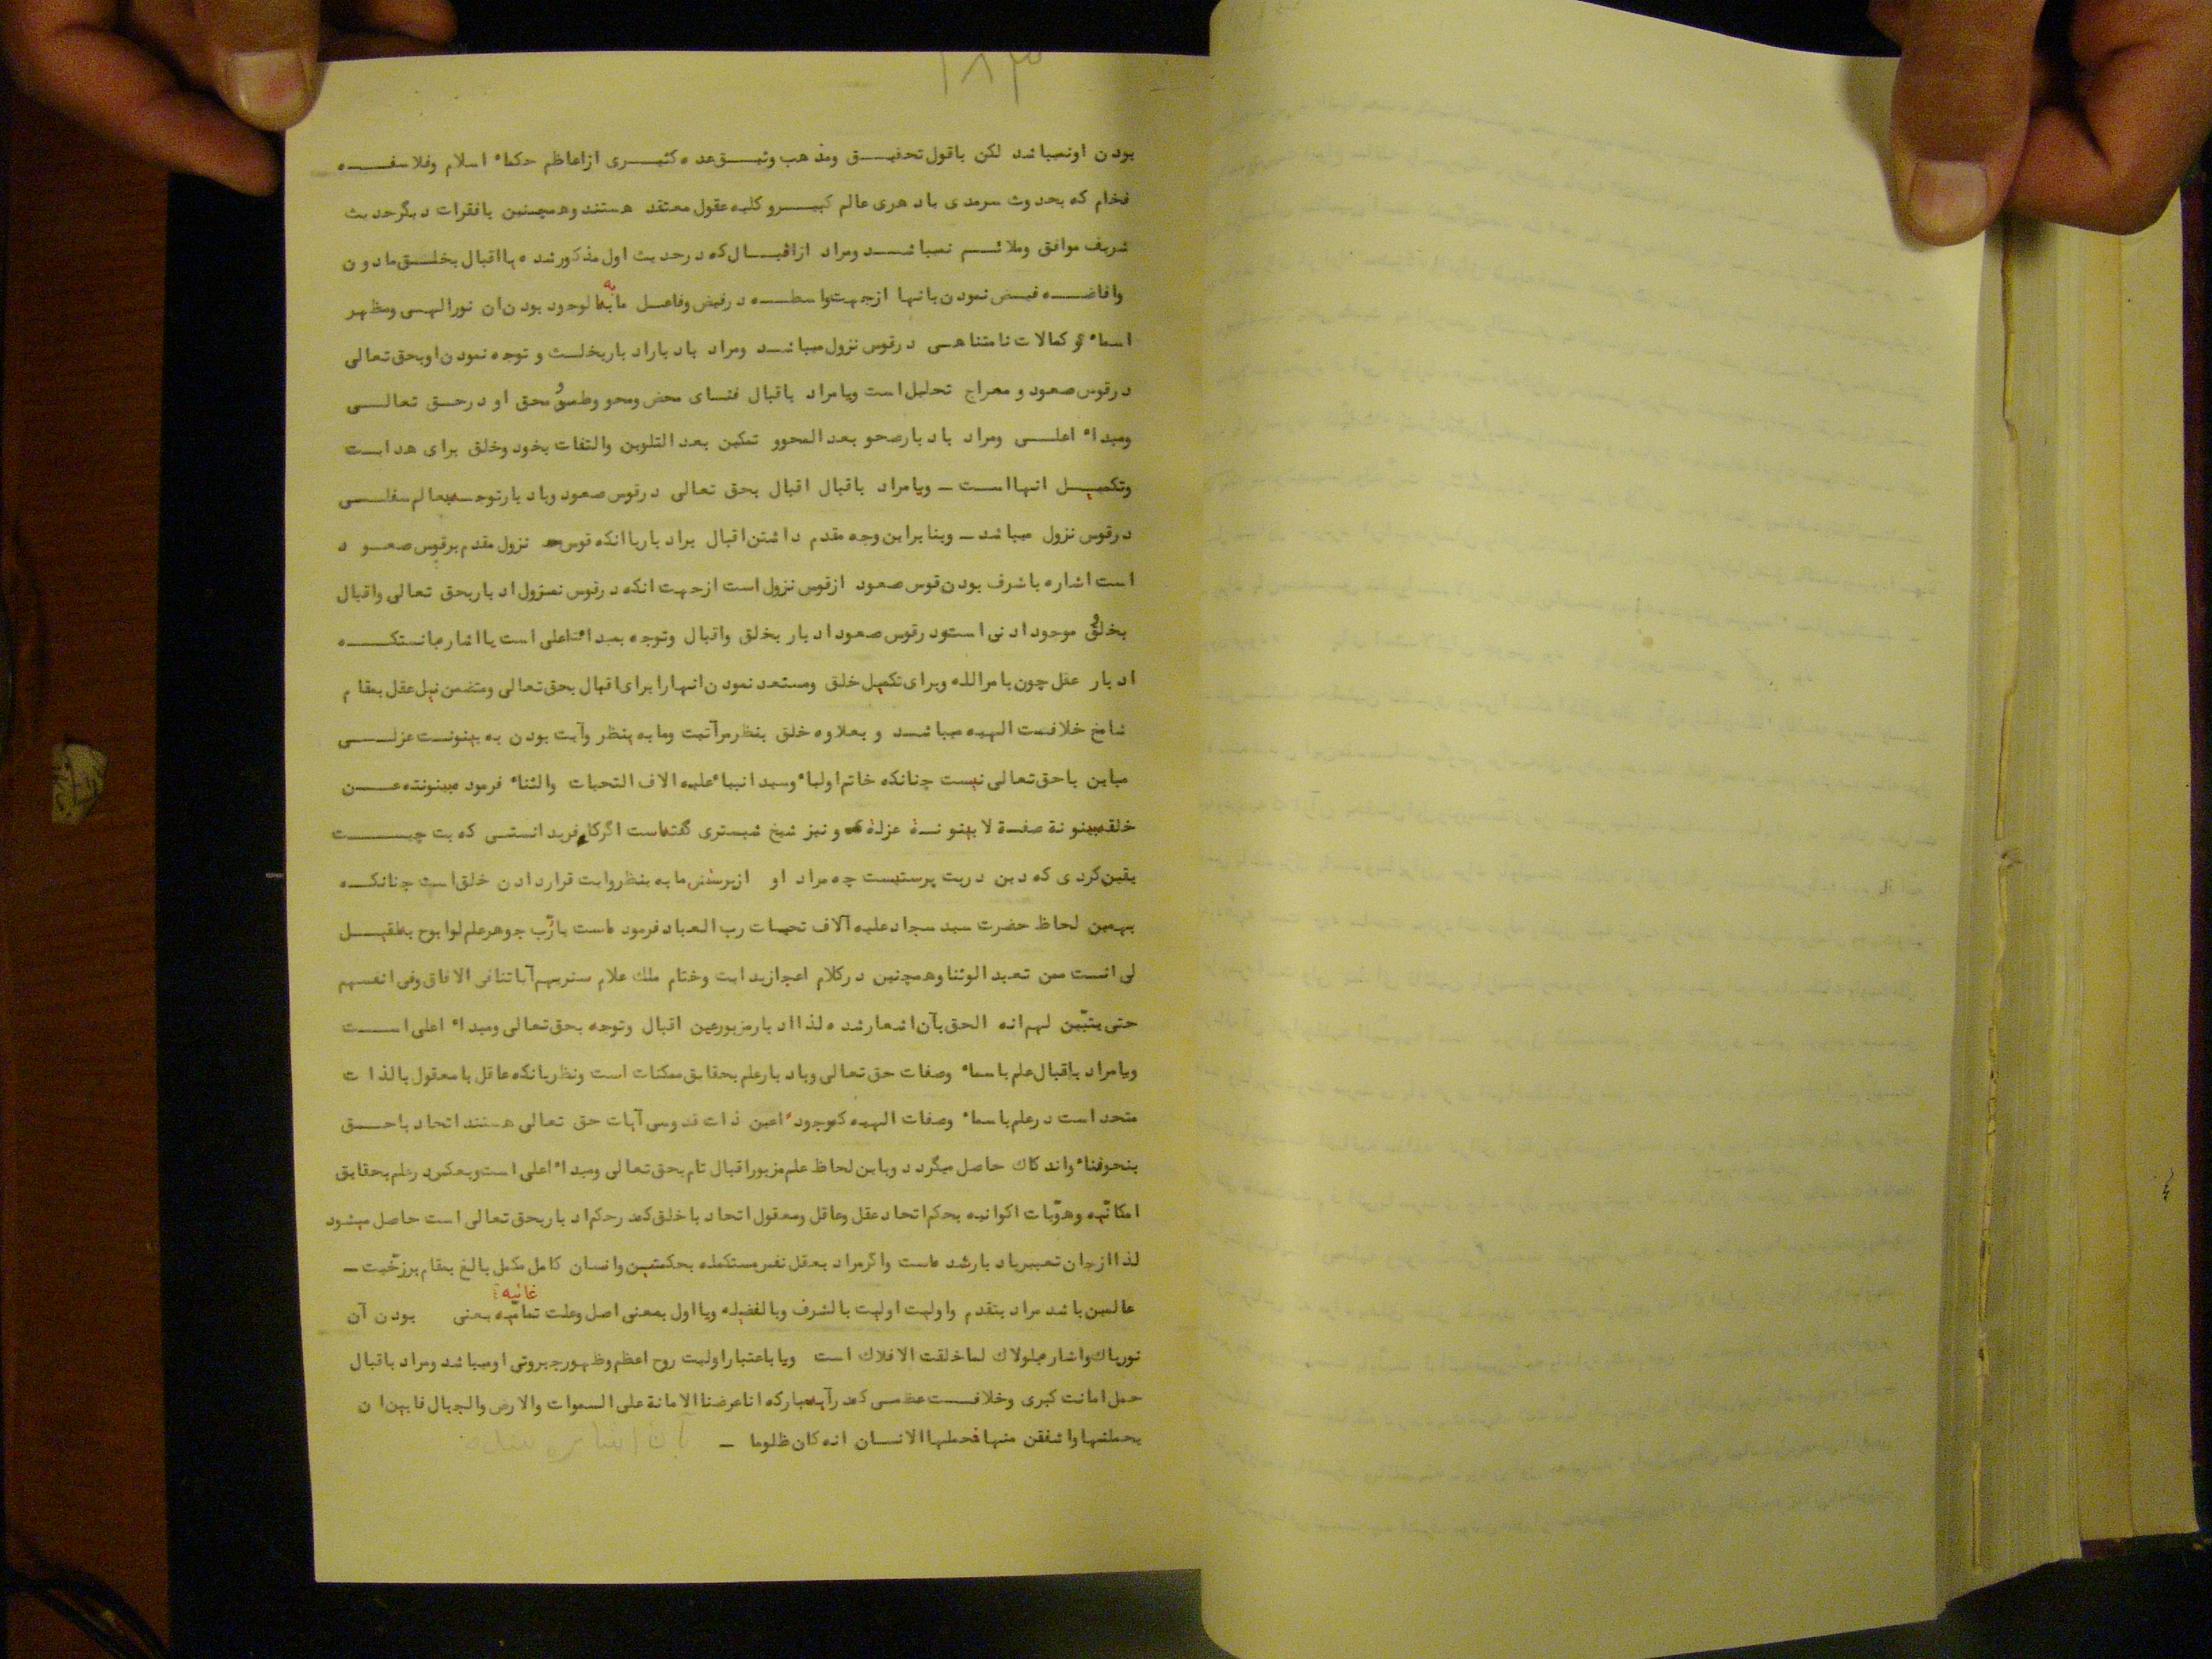 ۱۸۳
بودن اونمیباشد لکن باقول تحقیق ومذهب وثیق عده کثیری ازاعاظم حکماء اسلام وفلاسفه
فخام که بحدوث سرمدی یادهری عالم کبیر و کلیه عقول معتقد هستند وهمچنین بافقرات دیگرحدیث
شریف موافق وملائم نمیباشد ومراد ازاقبال که درحدیث اول مذکورشده یااقبال بخلق مادون
وافاضه فیض نمودن بانها ازجهت واسطه درفیض وفاعل مابه الوجود بودن ان نورالهی ومظهر
اسماء و کمالات نامتناهی درقوس نزول میباشد ومراد بادباراد باربخلق و توجه نمودن اوبحق تعالی
درقوس صعود و معراج تحلیل است ویامراد باقبال فنای محض ومحو وطمس و محق او درحق تعالی
ومبداء اعلی ومراد بادبارصحو بعد المحوو تمکین بعد التلوین والتفات بخود وخلق برای هدایت
وتکمیل انهااست ـ ویامراد باقبال اقبال بحق تعالی درقوس صعود وبادبارتوجه بعالم سفلی
درقوس نزول میباشد ـ وبنا براین وجه مقدم داشتن اقبال براد بارباانکه قوس نزول مقدم برقوس صعود
است اشاره باشرف بودن قوس صعود ازقوس نزول است ازجهت انکه درقوس نزول ادباربحق تعالی واقبال
بخلق و موجود ادنی است ودرقوس صعود ادبار بخلق واقبال وتوجه بمبداء اعلی است یااشاره بانستکه
ادبار عقل چون بامرالله وبرای تکمیل خلق ومستعد نمودن انهارا برای اقبال بحق تعالی ومتضمن نیل عقل بمقام
شامخ خلافت الهیه میباشد و بعلاوه خلق بنظرمرآتیت ومابه ینظر وآیت بودن به بینونت عزلی
مباین باحق تعالی نیست چنانکه خاتم اولیاء وسید انبیاء علیه الاف التحیات والثناء فرمود بینونته عن
خلقه بینونة صفة لا بینونة عزلة و نیز شیخ شبستری گفته است اگرکافر بدانستی که بت چیست
یقین کردی که دین دربت پرستیست چه مراد او ازپرستش مابه ینظروایت قراردادن خلق است چنانکه
بهمین لحاظ حضرت سید سجاد علیه آلاف تحیات رب العباد فرموده است یارّب جوهرعلم لوابوح به لقیل
لی انت ممن تعبد الوثنا وهمچنین درکلام اعجازبدایت وختام ملك علام سنریهم آیاتنافی الافاق وفی انفسهم
حتی یتبّین لهم انه الحق بآن اشعارشده لذا ادبارمزبورعین اقبال وتوجه بحق تعالی ومبداء اعلی است
ویامراد باقبال علم باسماء وصفات حق تعالی وبادبارعلم بحقایق ممکنات است ونظربانکه عاقل بامعقول بالذات
متحد است درعلم باسماء وصفات الهیه که موجود اعین ذات قدوسی آیات حق تعالی هستند اتحاد باحق
بنحوفناء واندکاك حاصل میگردد وباین لحاظ علم مزبوراقبال تام بحق تعالی ومبداء اعلی است وبعکس درعلم بحقایق
امکانّیه وهوّیات اکوانیه بحکم اتحاد عقل وعاقل ومعقول اتحاد باخلق که درحکم ادباربحق تعالی است حاصل میشود
لذا ازان تعبیربادبارشده است واگرمراد بعقل نفس مستکمله بحکمتین وانسان کامل مکمل بالغ بمقام برزخّیت ـ
عالمین باشد مراد بتقدم واولیت اولیت بالشرف وبالفضیله ویااول بمعنی اصل وعلت تمامّیه بمعنی غائیه بودن آن
نورپاك واشاره بلولاك لماخلقت الافلاك است ویاباعتباراولیت روح اعظم وظهورجبروتی اومیباشد ومراد باقبال
حمل امانت کبری وخلافت عظمی که درآیه مبارکه اناعرضناالامانة علی السموات والارض والجبال فابین ان
یحملنها واشفقن منهافحملهاالانسان انه کان ظلوما ـ